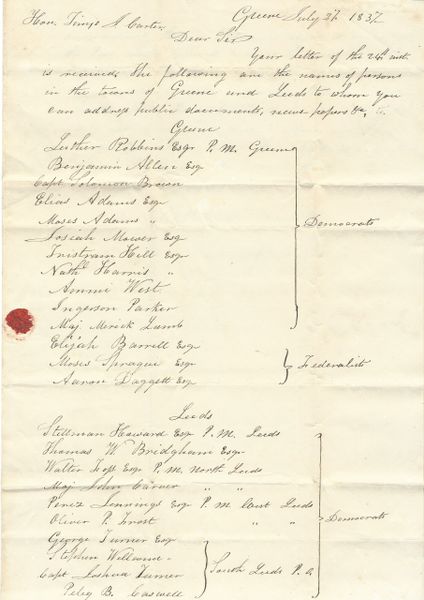 Greene July 27. 1837
Hon. Timo J. Carter,
Dear Sir
Your letter of the 24th inst.
is received. The following are the names of persons
in the towns of Greene and Leeds to whom you
can address public documents, news papers &c,
Greene
Luther Robbins Esqr P. M. Greene
Benjamin Allen Esq
Capt Solomon Brown
Elias Adams Esqr
Moses Adams "
Josiah Mower Esqr
Democrats
Tristram Hill Esqr
Nathl Harris "
West
Ingerson Parker
Maj. Merick Lamb
Elijah Barrell Esq
Moses Sprague Esqr
Federalist
Aaron Daggett Esq
Leeds
Stillman Howard Esqr P. M. Leeds
Thomas W Bridgham Esqr
Walter Foss Esqr P. M. North Leeds
Maj John Carver " "
Perez Jennings Esqr P. M. West Leeds
Democrats
Oliver P. Frost " "
George Turner Esqr
Stephen
South Leeds P. O.
Capt Joshua Turner
Peleg B. Caswell